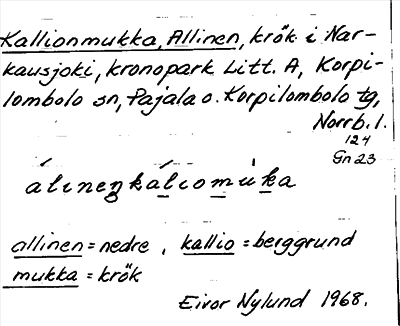 Kallionmukka, Allinen, krök i Nar-
kausjoki, kronopark Litt. A, Korpi-
lombolo sn, Pajala o. Korpilombolo tg,
Norrb. l.
124
Gn 23
álineŋkáliomúka
allinen = nedre, kallio = berggrund
mukka = krök
Eivor Nylund 1968.